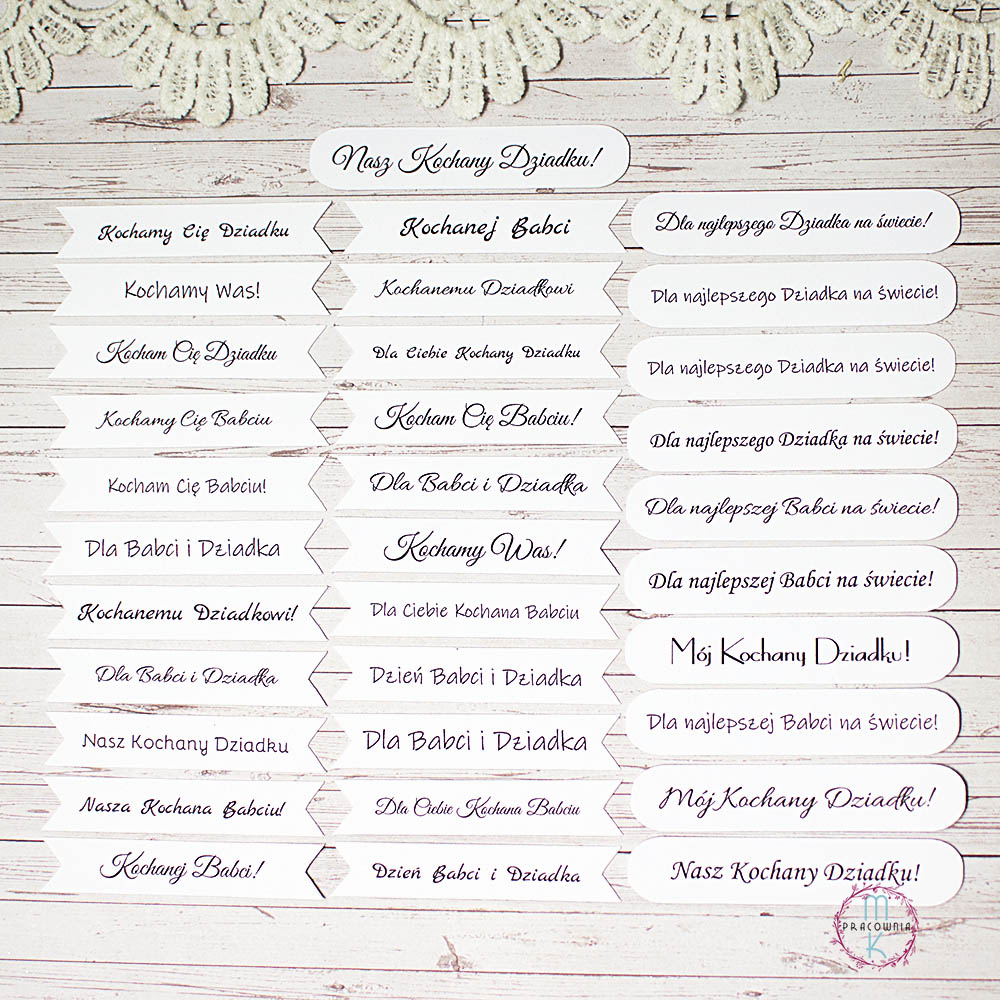 Nasz Kochany Dziadku!
Kochamy Cię Dziadku
Kochamy Was!
Kocham Cię Dziadku
Kochamy Cię Babciu
Kocham Cię Babciu!
Dla Babci i Dziadka
Kochanemu Dziadkowi!
Dla Babci i Dziadka
Nasz Kochany Dziadku
Nasza Kochana Babciu!
Kochanej Babci!
Kochanej Babci
Kochanemu Dziadkowi
Dla Ciebie Kochany Dziadku
Kocham Cię Babciu!
Dla Babci i Dziadka
Kochamy Was!
Dla Ciebie Kochana Babciu
Dzień Babci i Dziadka
Dla Babci i Dziadka
Dla Ciebie Kochana Babciu
Dzień Babci i Dziadka
Dla najlepszego Dziadka na świecie!
Dla najlepszego Dziadka na świecie!
Dla najlepszego Dziadka na świecie!
Dla najlepszego Dziadka na świecie!
Dla najlepszej Babci na świecie!
Dla najlepszej Babci na świecie!
Mój Kochany Dziadku!
Dla najlepszej Babci na świecie!
Mój Kochany Dziadku!
Nasz Kochany Dziadku!
M
PRACOWNIA
K